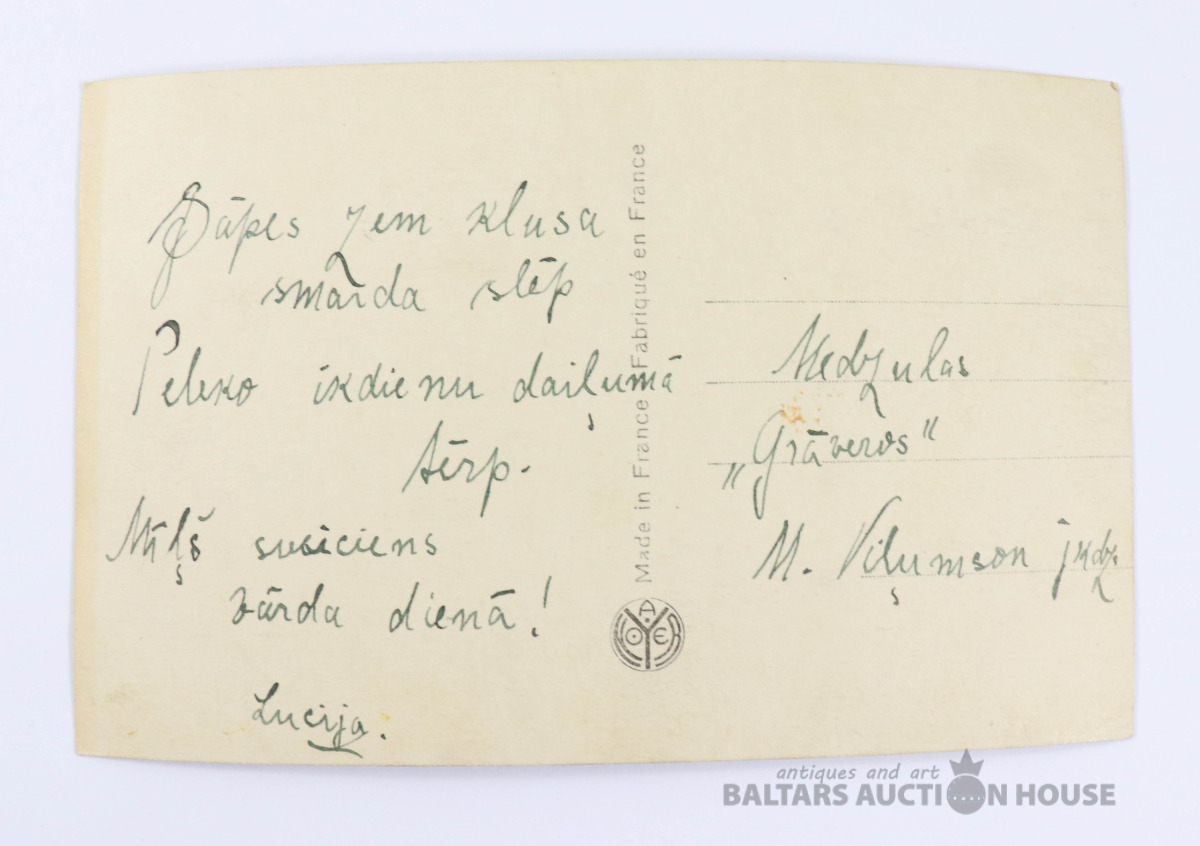 Sāpes zem klusa
smaida slēp
Pelēko ikdienu daiļumā
tērp.
Mīļš sveiciens
vārda dienā!
Lucija.
Made in France Fabriqué en France
A. NOYER
Medzulas
„Grāveros"
M. Viļumson jkdz.
antiques and art
BALTARS AUCTION HOUSE